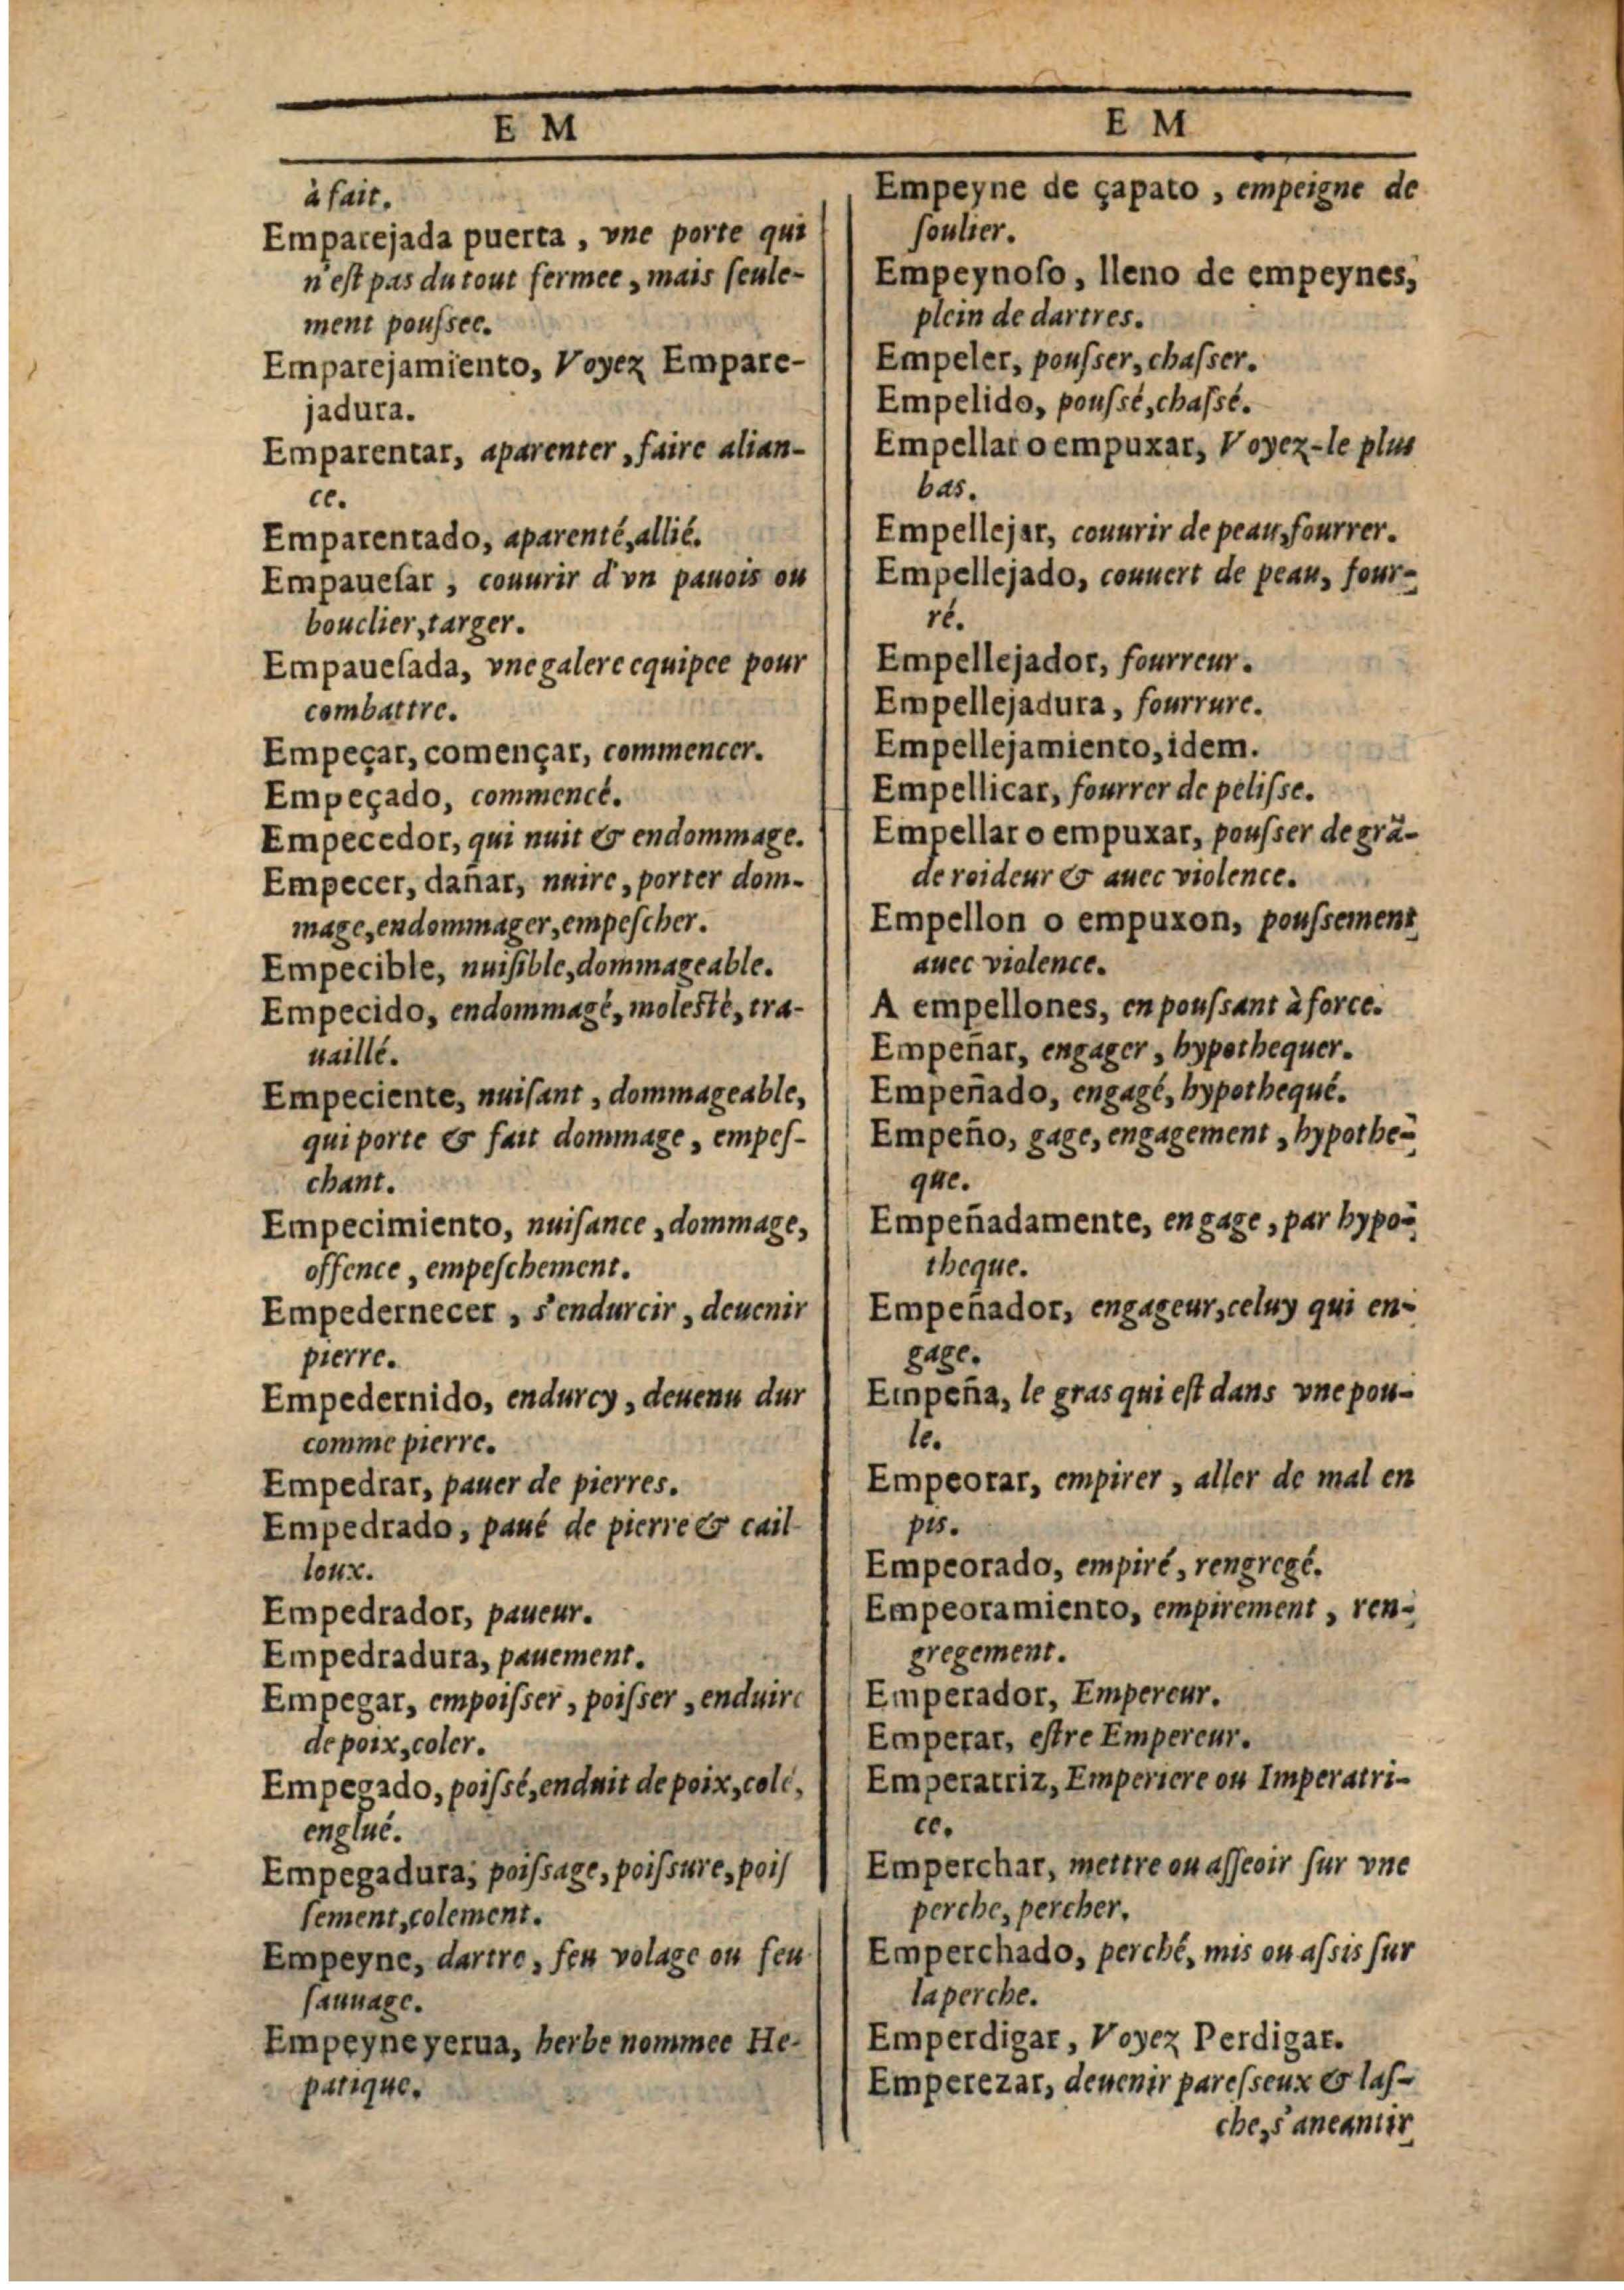 E M
à fait.
Emparejada puerta, vne porte qui
n'eſt pas du tout fermee, mais ſeule-
ment pouſsee.
Emparejamiento, Voyez Empare-
jadura.
Emparentar, aparenter, faire alian-
ce.
Emparentado, aparenté, allié.
Empaueſar, couurir d'vn pauois ou
bouclier, targer.
Empaueſada, vne galere equipee pour
combattre.
Empeçar, començar, commencer.
Empeçado, commencé.
Empecedor, qui nuit & endommage.
Empecer, dañar, nuire, porter dom-
mage, endommager, empeſcher.
Empecible, nuiſible, dommageable.
Empecido, endommagé, moleſté, tra-
uaillé.
Empeciente, nuiſant, dommageable,
qui porte & fait dommage, empeſ-
chant.
Empecimiento, nuiſance, dommage,
offence, empeſchement.
Empedernecer, s'endurcir, deuenir
pierre.
Empedernido, endurcy, deuenu dur
comme pierre.
Empedrar, pauer de pierres.
Empedrado, paué de pierre & cail
loux.
Empedrador, paueur.
Empedradura, pauement.
Empegar, empoiſser, poiſser, enduire
de poix, coler.
Empegado, poiſsé, enduit de poix, colé,
englué.
Empegadura, poiſsage, poiſsure, poiſ
ſement, colement.
Empeyne, dartre, feu volage ou feu
ſauuage.
Empeyne yerua, herbe nommee He-
patique.
E M
Empeyne de çapato, empeigne de
ſoulier.
Empeynoſo, lleno de empeynes,
plein de dartres.
Empeler, pouſser, chaſser.
Empelido, pouſsé, chaſsé.
Empellar o empuxar, Voyez-le plus
bas.
Empellejar, couurir de peau, fourrer.
Empellejado, couuert de peau, four-
ré.
Empellejador, fourreur.
Empellejadura, fourrure.
Empellejamiento, idem.
Empellicar, fourrer de peliſse.
Empellar o empuxar, pouſser de grã-
de roideur & auec violence.
Empellon o empuxon, pouſsement
auec violence.
A empellones, en pouſsant à force.
Empeñar, engager, hypothequer.
Empeñado, engagé, hypothequé.
Empeño, gage, engagement, hypothe-
que.
Empeñadamente, en gage, par hypo-
theque.
Empeñador, engageur, celuy qui en-
gage.
Empeña, le gras qui eſt dans vne pou-
le.
Empeorar, empirer, aller de mal en
pis.
Empeorado, empiré, rengregé.
Empeoramiento, empirement, ren-
gregement.
Emperador, Empereur.
Emperar, eſtre Empereur.
Emperatriz, Emperiere ou Imperatri-
ce.
Emperchar, mettre ou aſſeoir ſur vne
perche, percher.
Emperchado, perché, mis ou aſsis ſur
la perche.
Emperdigar, Voyez Perdigar.
Emperezar, deuenir pareſseux & laſ-
che, s'aneantir